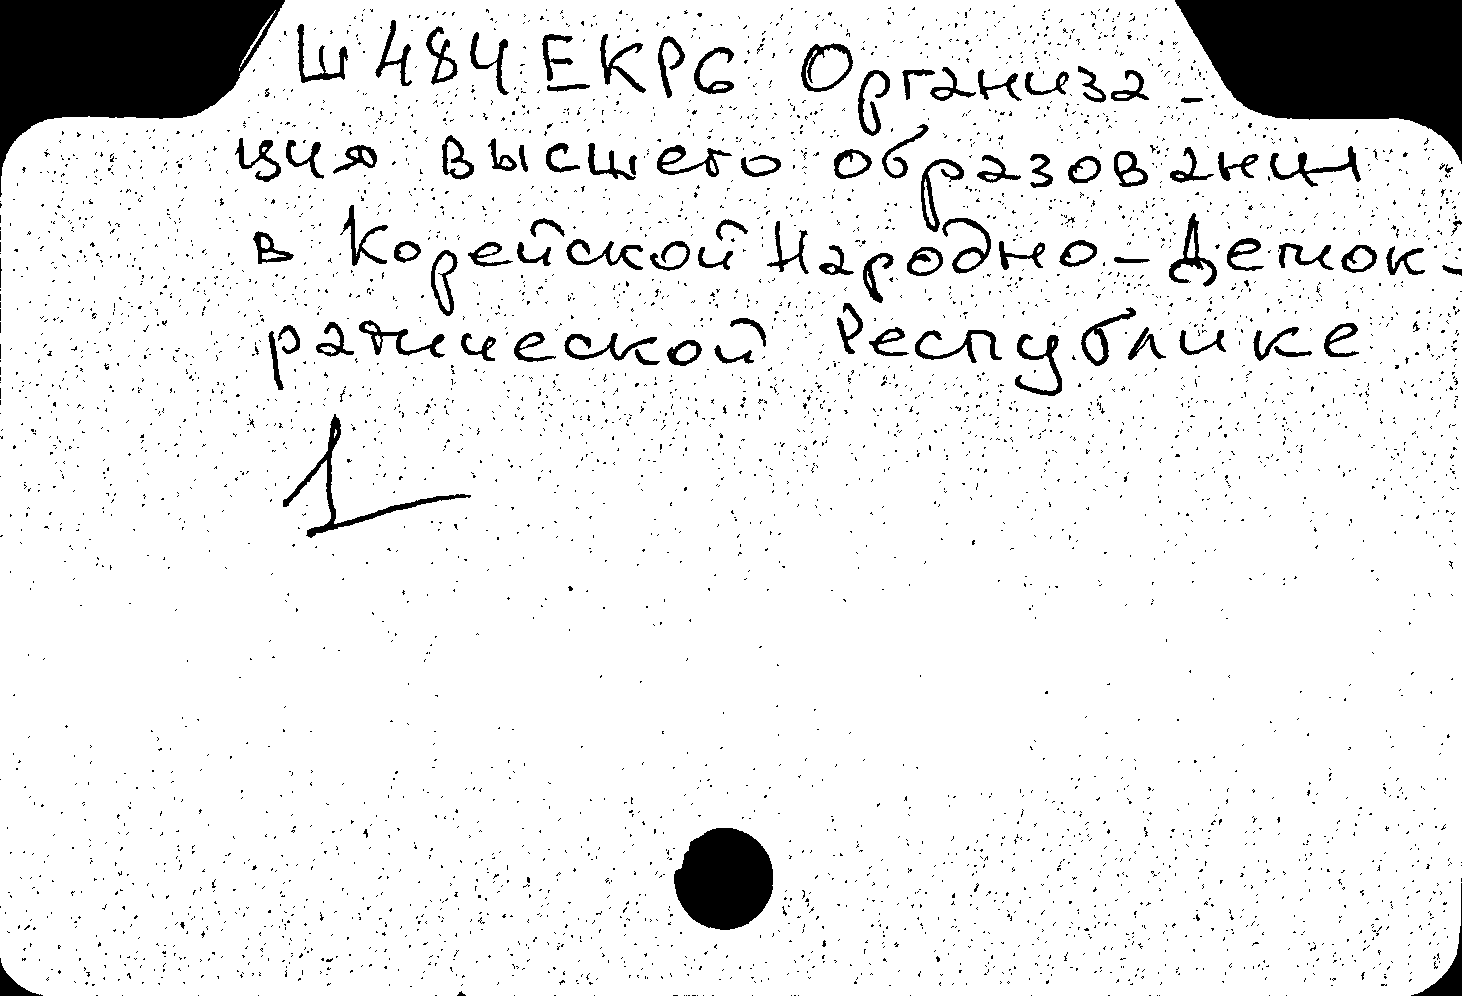 Ш484ЕКР6 Организа-
ция высшего образования
в Корейской Народно-Демок-
ратической Республике
1